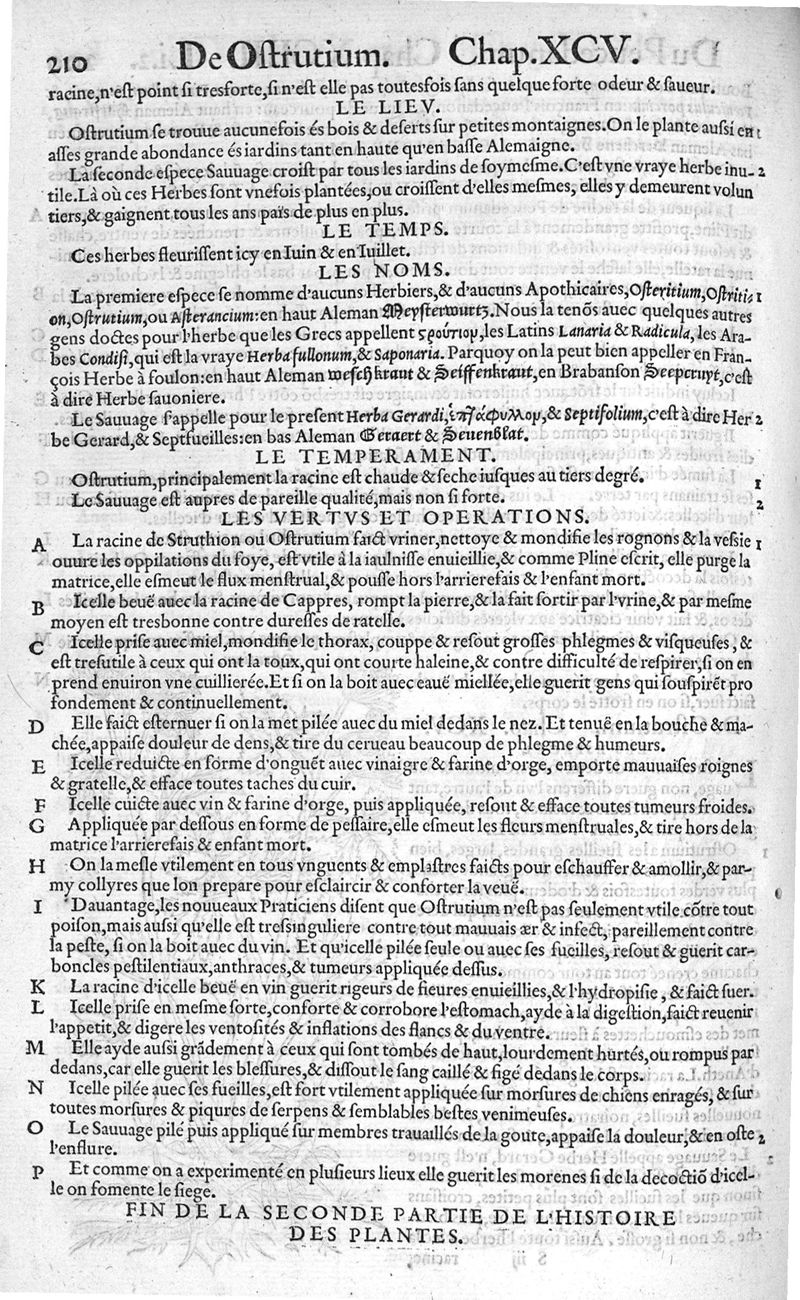 210 De Ostrutium. Chap. XCV.
racine, n'est point si tresforte, si n'est elle pas toutesfois sans quelque forte odeur & saueur.
LE LIEV.
Ostrutium se trouue aucunefois és bois & deserts sur petites montaignes. On le plante aussi en 1
asses grande abondance és iardins tant en haute qu'en basse Alemaigne.
La seconde espece Sauuage croist par tous les iardins de soymesme. C'est vne vraye herbe inu- 2
tile. Là où ces Herbes sont vnefois plantées, ou croissent d'elles mesmes, elles y demeurent volun
tiers, & gaignent tous les ans païs de plus en plus.
LE TEMPS.
Ces herbes fleurissent icy en Iuin & en Iuillet.
LES NOMS.
La premiere espece se nomme d'aucuns Herbiers, & d'aucuns Apothicaires, Osteritium, Ostriti- 1
on, Ostrutium, ou Asterancium: en haut Aleman Meysterwurtz. Nous la tenõs auec quelques autres
gens doctes pour l'herbe que les Grecs appellent ςρούτιον, les Latins Lanaria & Radicula, les Ara-
bes Condisi, qui est la vraye Herba fullonum, & Saponaria. Parquoy on la peut bien appeller en Fran-
çois Herbe à foulon: en haut Aleman weschkraut & Seiffenkraut, en Brabanson Seepcruyt, c'est
à dire Herbe sauoniere.
Le Sauuage s'appelle pour le present Herba Gerardi, ἑπτάφυλλον, & Septifolium, c'est à dire Her 2
be Gerard, & Septfueilles: en bas Aleman Geraert & Seuenblat.
LE TEMPERAMENT.
Ostrutium, principalement la racine est chaude & seche iusques au tiers degré. 1
Le Sauuage est aupres de pareille qualité, mais non si forte. 2
LES VERTVS ET OPERATIONS.
A La racine de Struthion ou Ostrutium faict vriner, nettoye & mondifie les rognons & la vessie 1
ouure les oppilations du foye, est vtile à la iaulnisse enuieillie, & comme Pline escrit, elle purge la
matrice, elle esmeut le flux menstrual, & pousse hors l'arrierefais & l'enfant mort.
B Icelle beuë auec la racine de Cappres, rompt la pierre, & la fait sortir par l'vrine, & par mesme
moyen est tresbonne contre duresses de ratelle.
C Icelle prise auec miel, mondifie le thorax, couppe & resout grosses phlegmes & visqueuses, &
est tresutile à ceux qui ont la toux, qui ont courte haleine, & contre difficulté de respirer, si on en
prend enuiron vne cuillierée. Et si on la boit auec eauë miellée, elle guerit gens qui souspirẽt pro
fondement & continuellement.
D Elle faict esternuer si on la met pilée auec du miel dedans le nez. Et tenuë en la bouche & ma-
chée, appaise douleur de dens, & tire du cerueau beaucoup de phlegme & humeurs.
E Icelle reduicte en forme d'onguẽt auec vinaigre & farine d'orge, emporte mauuaises roignes
& gratelle, & efface toutes taches du cuir.
F Icelle cuicte auec vin & farine d'orge, puis appliquée, resout & efface toutes tumeurs froides.
G Appliquée par dessous en forme de pessaire, elle esmeut les fleurs menstruales, & tire hors de la
matrice l'arrierefais & enfant mort.
H On la mesle vtilement en tous vnguents & emplastres faicts pour eschauffer & amollir, & par-
my collyres que lon prepare pour esclaircir & conforter la veuë.
I Dauantage, les nouueaux Praticiens disent que Ostrutium n'est pas seulement vtile cõtre tout
poison, mais aussi qu'elle est tressinguliere contre tout mauuais ær & infect, pareillement contre
la peste, si on la boit auec du vin. Et qu'icelle pilée seule ou auec ses fueilles, resout & guerit car-
boncles pestilentiaux, anthraces, & tumeurs appliquée dessus.
K La racine d'icelle beuë en vin guerit rigeurs de fieures enuieillies, & l'hydropisie, & faict suer.
L Icelle prise en mesme sorte, conforte & corrobore l'estomach, ayde à la digestion, faict reuenir
l'appetit, & digere les ventosités & inflations des flancs & du ventre.
M Elle ayde aussi grãdement à ceux qui sont tombés de haut, lourdement hurtés, ou rompus par
dedans, car elle guerit les blessures, & dissout le sang caillé & figé dedans le corps.
N Icelle pilée auec ses fueilles, est fort vtilement appliquée sur morsures de chiens enragés, & sur
toutes morsures & piqures de serpens & semblables bestes venimeuses.
O Le Sauuage pilé puis appliqué sur membres trauaillés de la goute, appaise la douleur, & en oste 2
l'enflure.
P Et comme on a experimenté en plusieurs lieux elle guerit les morenes si de la decoctiõ d'icel-
le on fomente le siege.
FIN DE LA SECONDE PARTIE DE L'HISTOIRE
DES PLANTES.